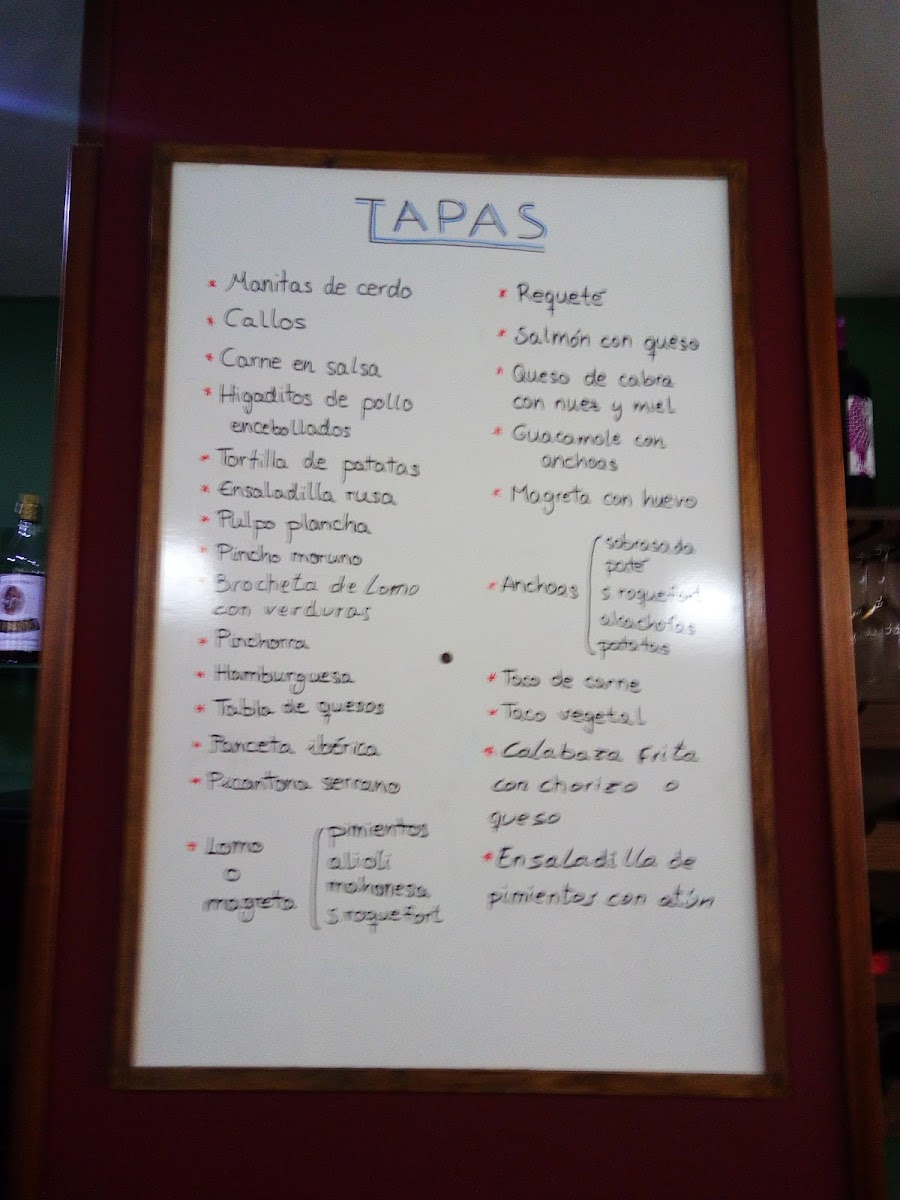 TAPAS
* Manitas de cerdo
* Callos
* Carne en salsa
* Higaditos de pollo
encebollados
* Tortilla de patatas
* Ensaladilla rusa
* Pulpo plancha
* Pincho moruno
* Brocheta de Lomo
con verduras
* Pinchorra
* Hamburguesa
* Tabla de quesos
* Panceta ibérica
* Picantona serrano
* Lomo
o
magreta
pimientos
alioli
mahonesa
s.roquefort
* Requeté
* Salmón con queso
* Queso de cabra
con nuez y miel
* Guacamole con
anchoas
* Magreta con huevo
* Anchoas
sobrasada
paté
s.roquefort
alcachofas
patatas
* Taco de carne
* Taco vegetal
* Calabaza frita
con chorizo o
queso
* Ensaladilla de
pimientos con atún